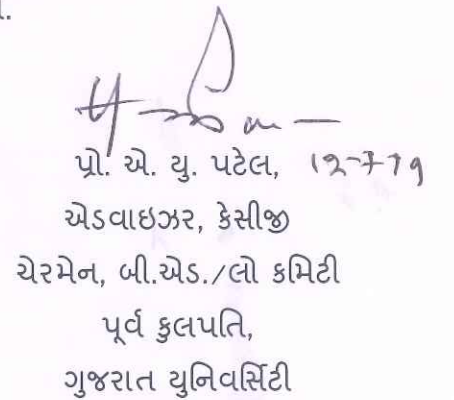 પ્રો. એ. યુ. પટેલ, 12-7-19
એડવાઇઝર, કેસીજી
ચેરમેન, બી.એડ./લો કમિટી
પૂર્વ કુલપતિ,
ગુજરાત યુનિવર્સિટી